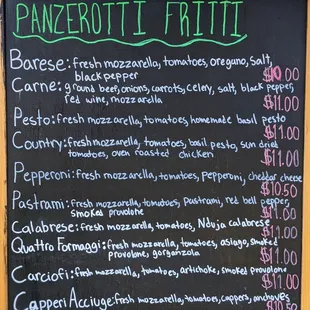 PANZEROTTI FRITTI
Barese: fresh mozzarella, tomatoes, oregano, salt,
black pepper $10.00
Carne: ground beef, onions, carrots, celery, salt, black pepper,
red wine, mozzarella $11.00
Pesto: fresh mozzarella, tomatoes, homemade basil pesto
$11.00
Country: fresh mozzarella, tomatoes, basil pesto, sun dried
tomatoes, oven roasted chicken $11.00
Pepperoni: fresh mozzarella, tomatoes, pepperoni, cheddar cheese
$10.50
Pastrami: fresh mozzarella, tomatoes, pastrami, red bell pepper,
smoked provolone $11.00
Calabrese: fresh mozzarella, tomatoes, Nduja calabrese
$11.00
Quattro Formaggi: fresh mozzarella, tomatoes, asiago, smoked
provolone, gorgonzola $11.00
Carciofi: fresh mozzarella, tomatoes, artichoke, smoked provolone
$11.00
Capperi Acciuge: fresh mozzarella, tomatoes, cappers, anchovies
$10.50